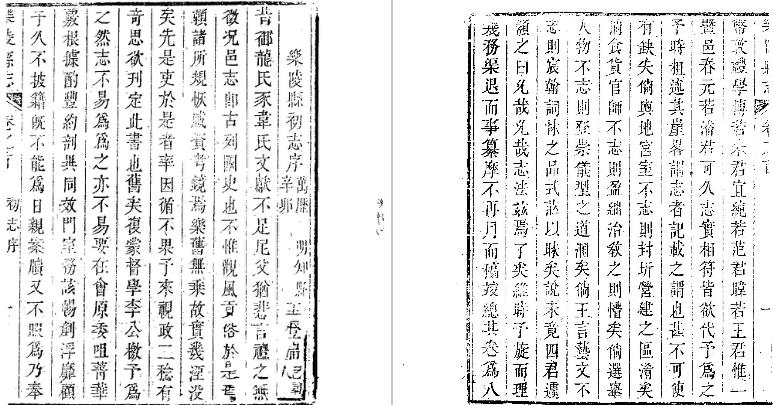 樂陵縣初志序 萬曆辛卯 明知縣 王登庸
昔御龍氏豕韋氏文獻不足尼父猶悲言禮之無
徵況邑志郎古列國史也不惟觀風 俗於是焉
賴諸所規恢咸資考鏡焉樂舊無乘故實幾湮沒
矣先是吏於是者率因循不果予來視政二稔有
奇思欲刊定此書也舊矣復蒙督學李公檄予為
之然志不易為為之亦不易要在會原委咀菁華
覈根據酌豐約剖異同效門宗務該暢 浮靡顧
予久不披籍既不能為日親案牘又不暇為乃奉
樂陵縣志 卷之首 初志序 一
幣敦禮學博若 君宜純若范君 若王君維一
暨邑春元若潘君可久志實相符皆欲代予為之
予時祖述其崖畧謂志者記載之謂也甚不可使
有缺失倘輿地宮室不志則封圻營建之區淆矣
倘食貨官師不志則盈縮治教之則懵矣倘選舉
人物不志則 崇儀型之道湮矣倘王言藝文不
志則宸翰詞林之品式 以昧矣說未竟四君遽
頷之曰允哉允哉志法茲焉了矣維時予旋而理
務渠退而事纂摩不再月而稿竣總其卷為八